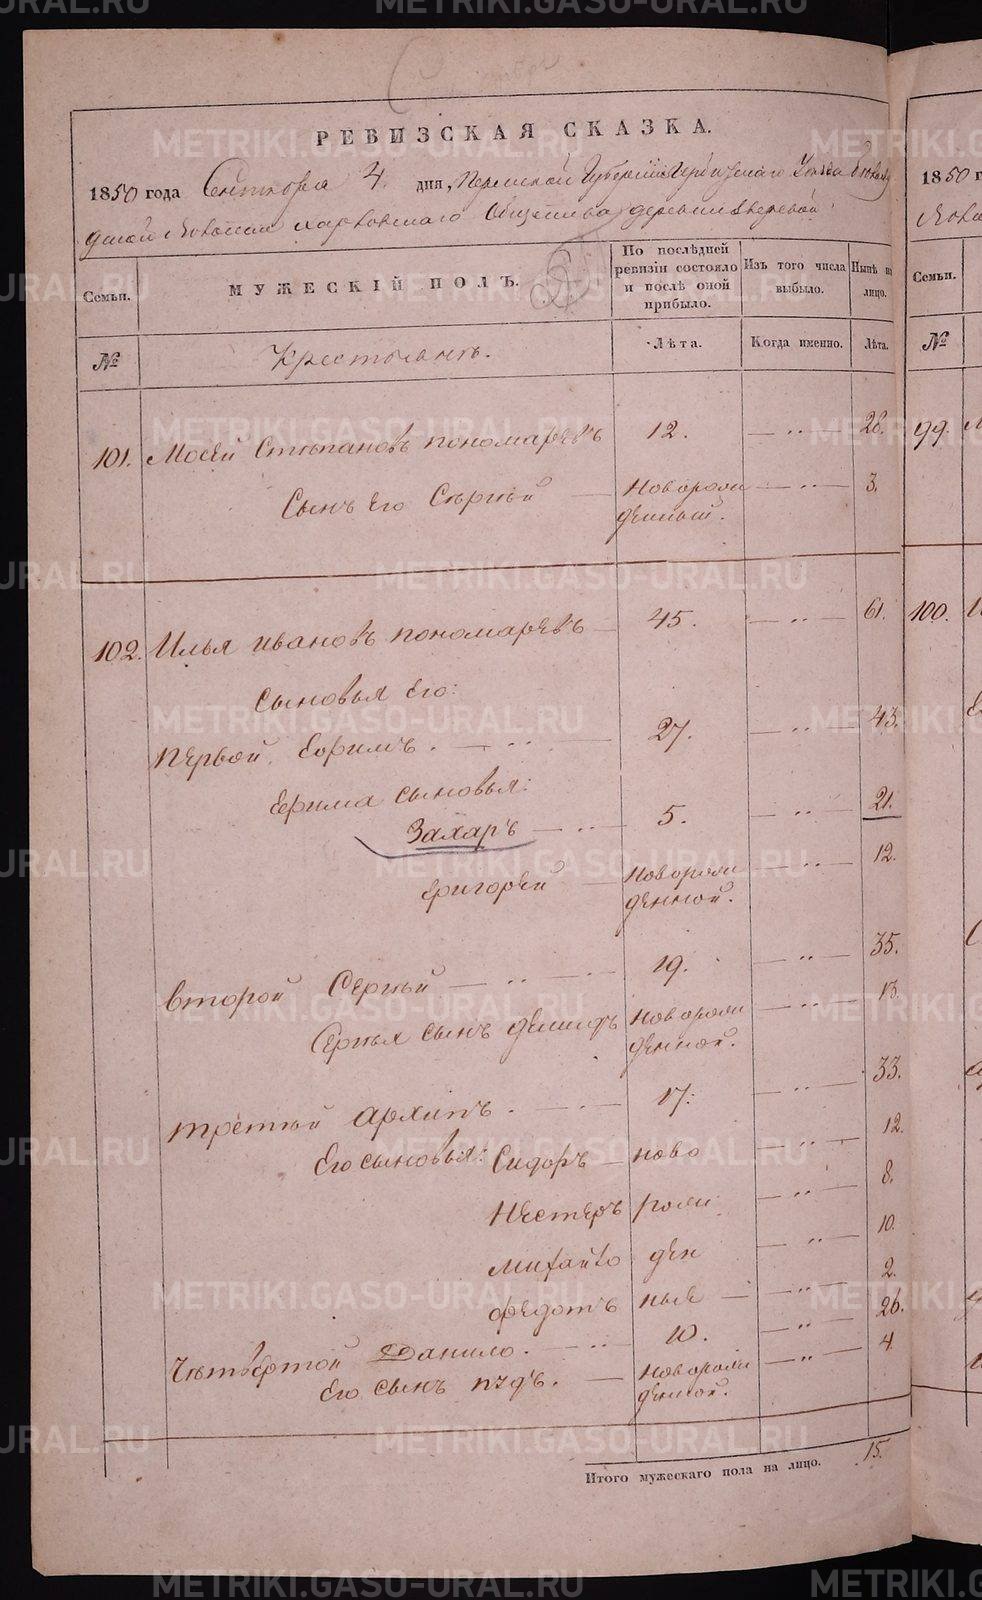 РЕВИЗСКАЯ СКАЗКА.
1850 года Сентября 4 дня, Пермской Губернии Ирбитского Уезда
волости Харловского Общества деревни Зверевой
Семьи. МУЖЕСКІЙ ПОЛЪ. По послѣдней ревизіи состояло и послѣ оной прибыло. Изъ того числа выбыло. Нынѣ на лицо.
№ Крестьянъ. Лѣта. Когда именно. Лѣта.
101. Мосей Степановъ пономаревъ 12. — „ — 28.
Сынъ Его Сергѣй — Новорож — „ — 3.
денный.
102. Илья ивановъ пономаревъ — 45. — „ — 61.
Сыновья Его:
первой Ефимъ. — „ — 27. — „ — 43.
Ефима сыновья:
Захаръ — „ — 5. — „ — 21.
Григорей — Новорож — „ — 12.
денной.
второй Сергѣй — „ — 19. — „ — 35.
Сергѣя сынъ демидъ Новорож — „ — 13.
денной.
третьй архипъ. — „ — 17. — „ — 33.
Его сыновья: Сидоръ — ново — „ — 12.
Нестеръ рож — „ — 8.
михайло ден — „ — 10.
федотъ ные — „ — 2.
Четвертой Данило. — „ — 10. — „ — 26.
Его сынъ — Новорож — „ — 4.
денной.
Итого мужескаго пола на лицо. 15.
1850 г
Семьи.
№
99.
100.
METRIKI.GASO-URAL.RU